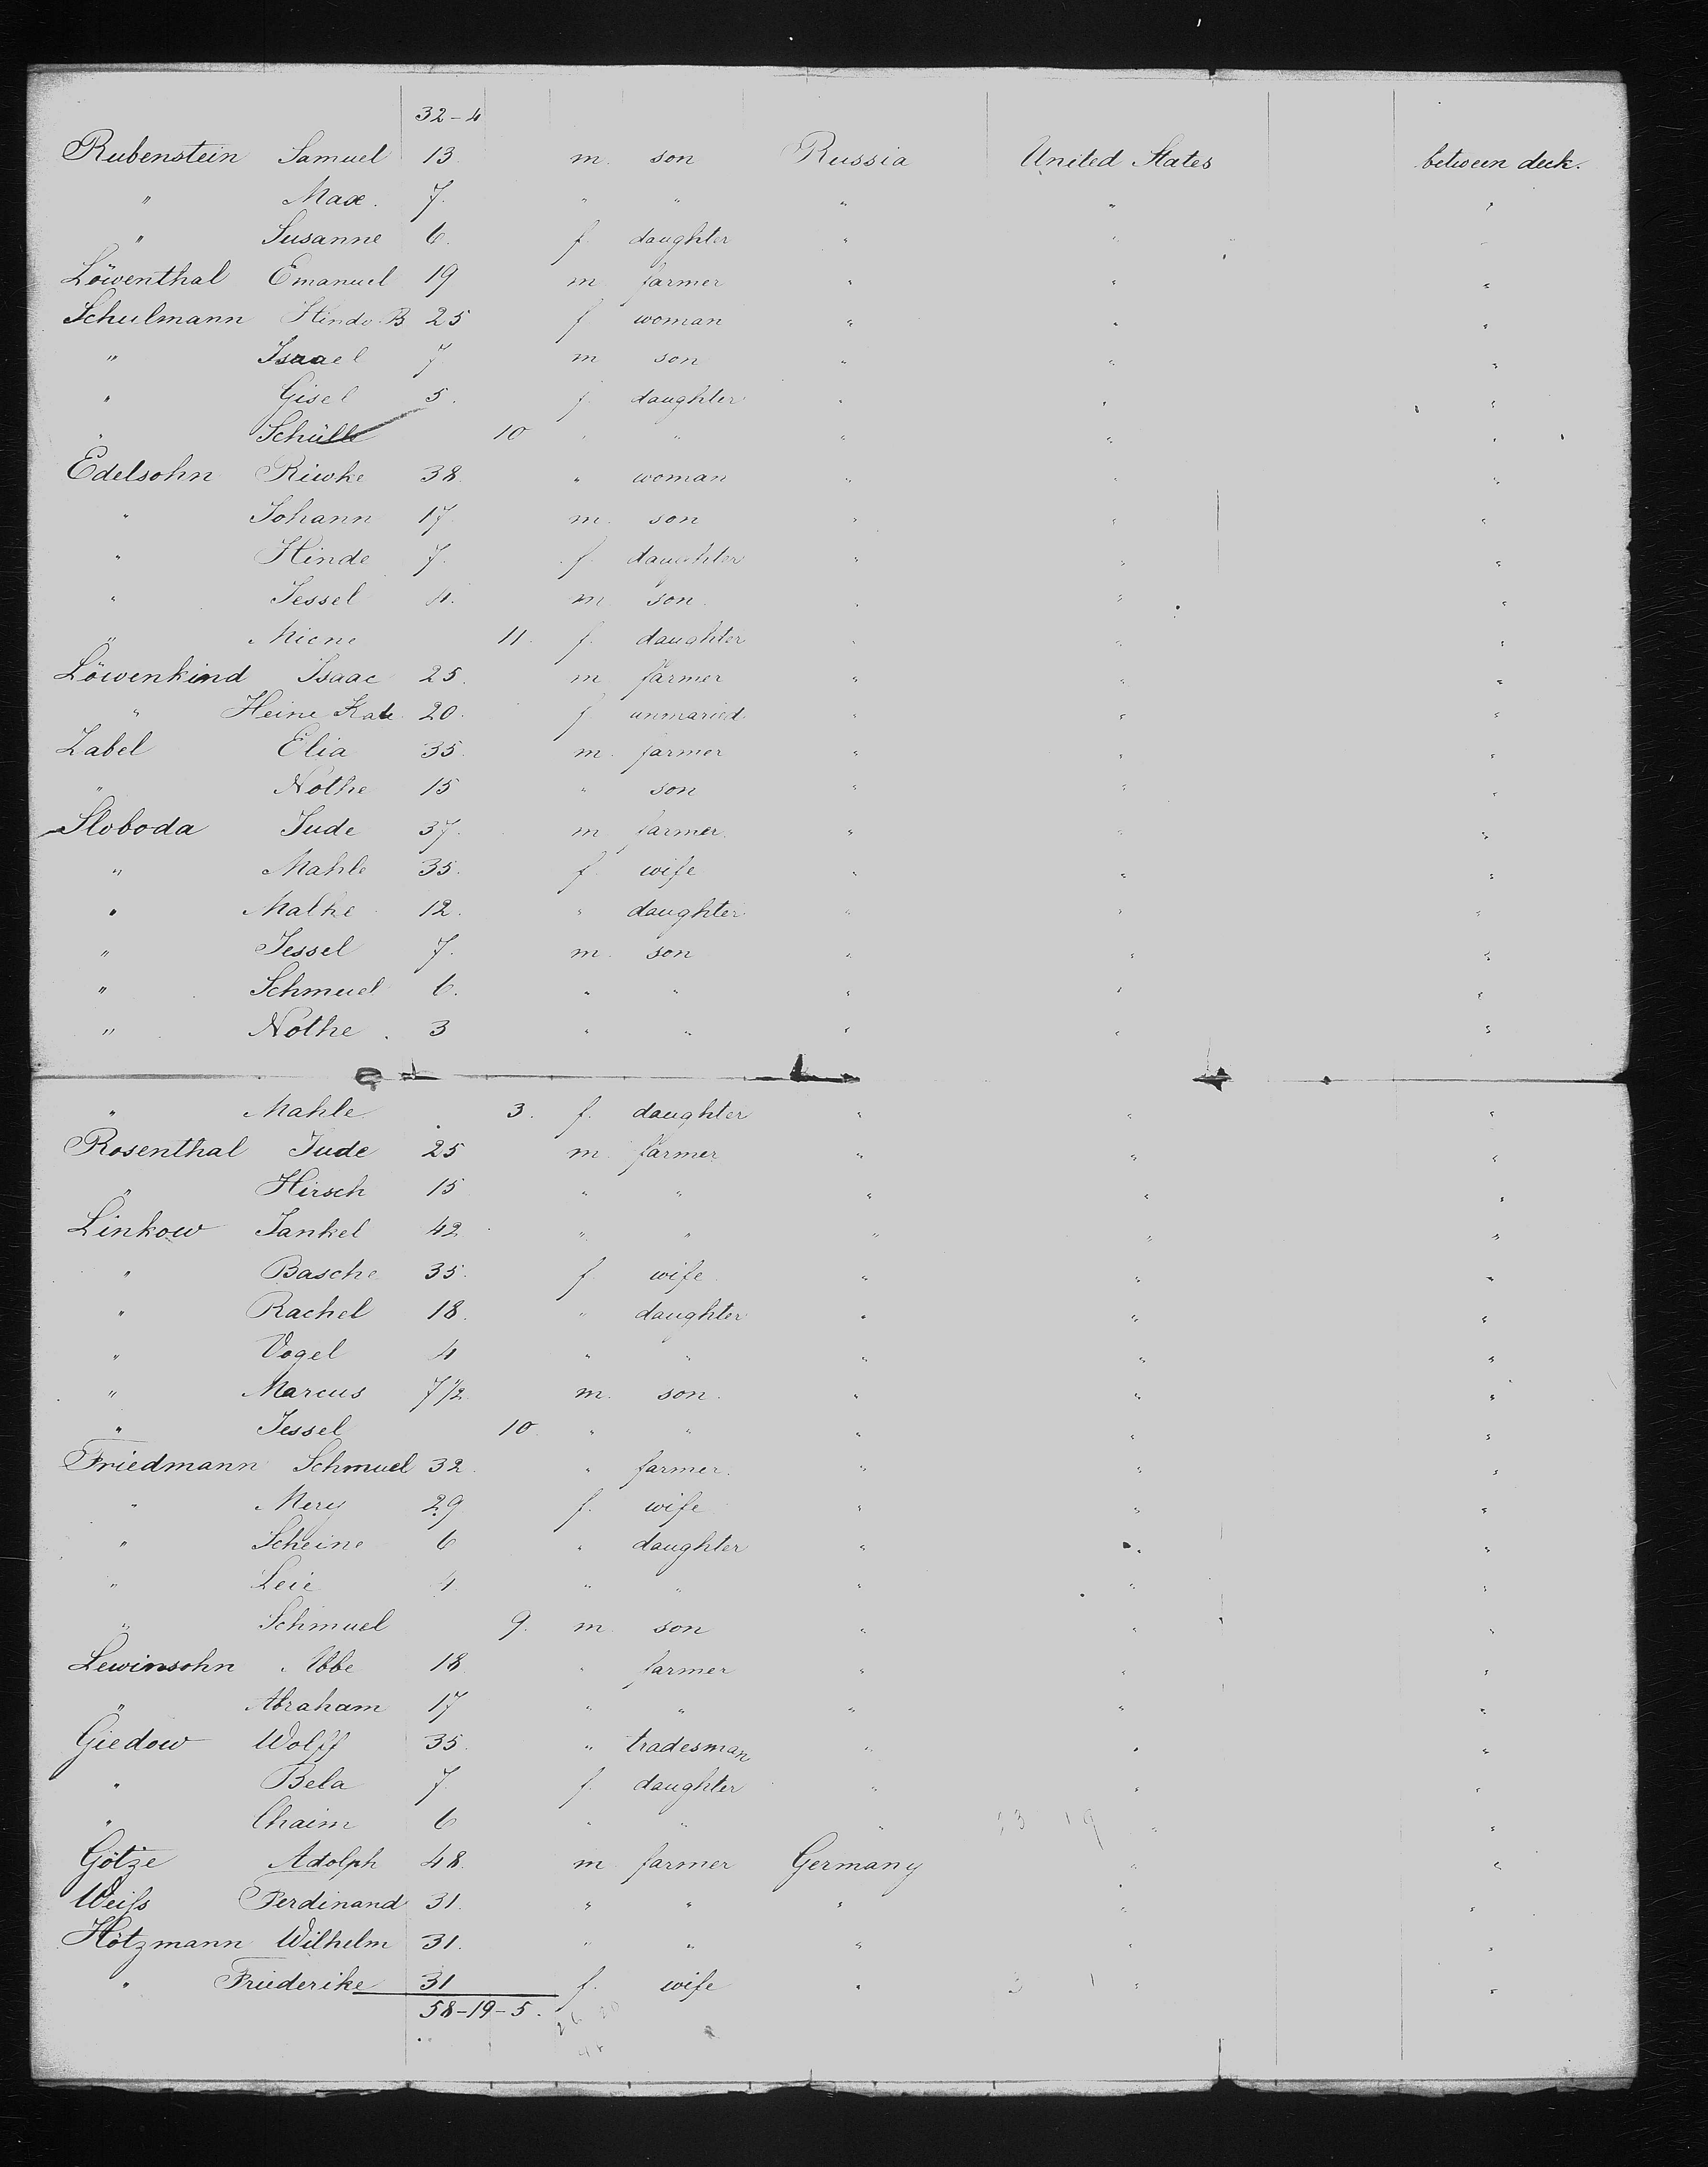 32-4
Rubenstein Samuel 13 m. son Russia United States between deck.
" Max. 7. " " " " "
" Susanne 6. f. daughter " " "
Löwenthal Emanuel 19 m farmer " " "
Schulmann Hinde B 25 f woman " " "
" Israel 7 m son " " "
" Gisel 5. f. daughter " " "
" 10 " " " " "
Edelsohn Riwke 38. " woman " " "
" Johann 17. m. son " " "
" Hinde 7. f. daughter " " "
" Jessel 4. m son. " " "
" 11. f. daughter " " "
Löwenkind Isaac 25. m farmer " " "
" Heine Kate 20. f unmaried " " "
Zabel Elia 35. m. farmer " " "
" Nothe 15 " son " " "
Sloboda Jude 37. m farmer. " " "
" Mahle 35. f. wife " " "
" Malke 12. " daughter " " "
" Jessel 7. m. son " " "
" Schmuel 6. " " " " "
" Nothe. 3 " " " " "
" Mahle 3. f. daughter " " "
Rosenthal Jude 25 m. farmer " " "
" Hirsch 15 " " " " "
Linkow Jankel 42 " " " " "
" Basche 35. f wife " " "
" Rachel 18. " daughter " " "
" Vogel 4 " " " " "
" Marcus 7 1/2 m. son. " " "
" Jessel 10 " " " " "
Friedmann Schmuel 32. " farmer. " " "
" Mery 29 f. wife " " "
" Scheine 6 " daughter " " "
" Leie 4 " " " " "
" Schmuel 9. m. son " " "
Lewinsohn Abbe 18 " farmer " " "
" Abraham 17 " " " " "
Giedow Wolff 35. " tradesman " " "
" Bela 7. f. daughter " " "
" Chaim 6 " " " " "
Götze Adolph 48. m farmer Germany " "
Weiſs Ferdinand 31. " " " " "
Hötzmann Wilhelm 31. " " " " "
" Friederike 31 f. wife " " "
58-19-5.